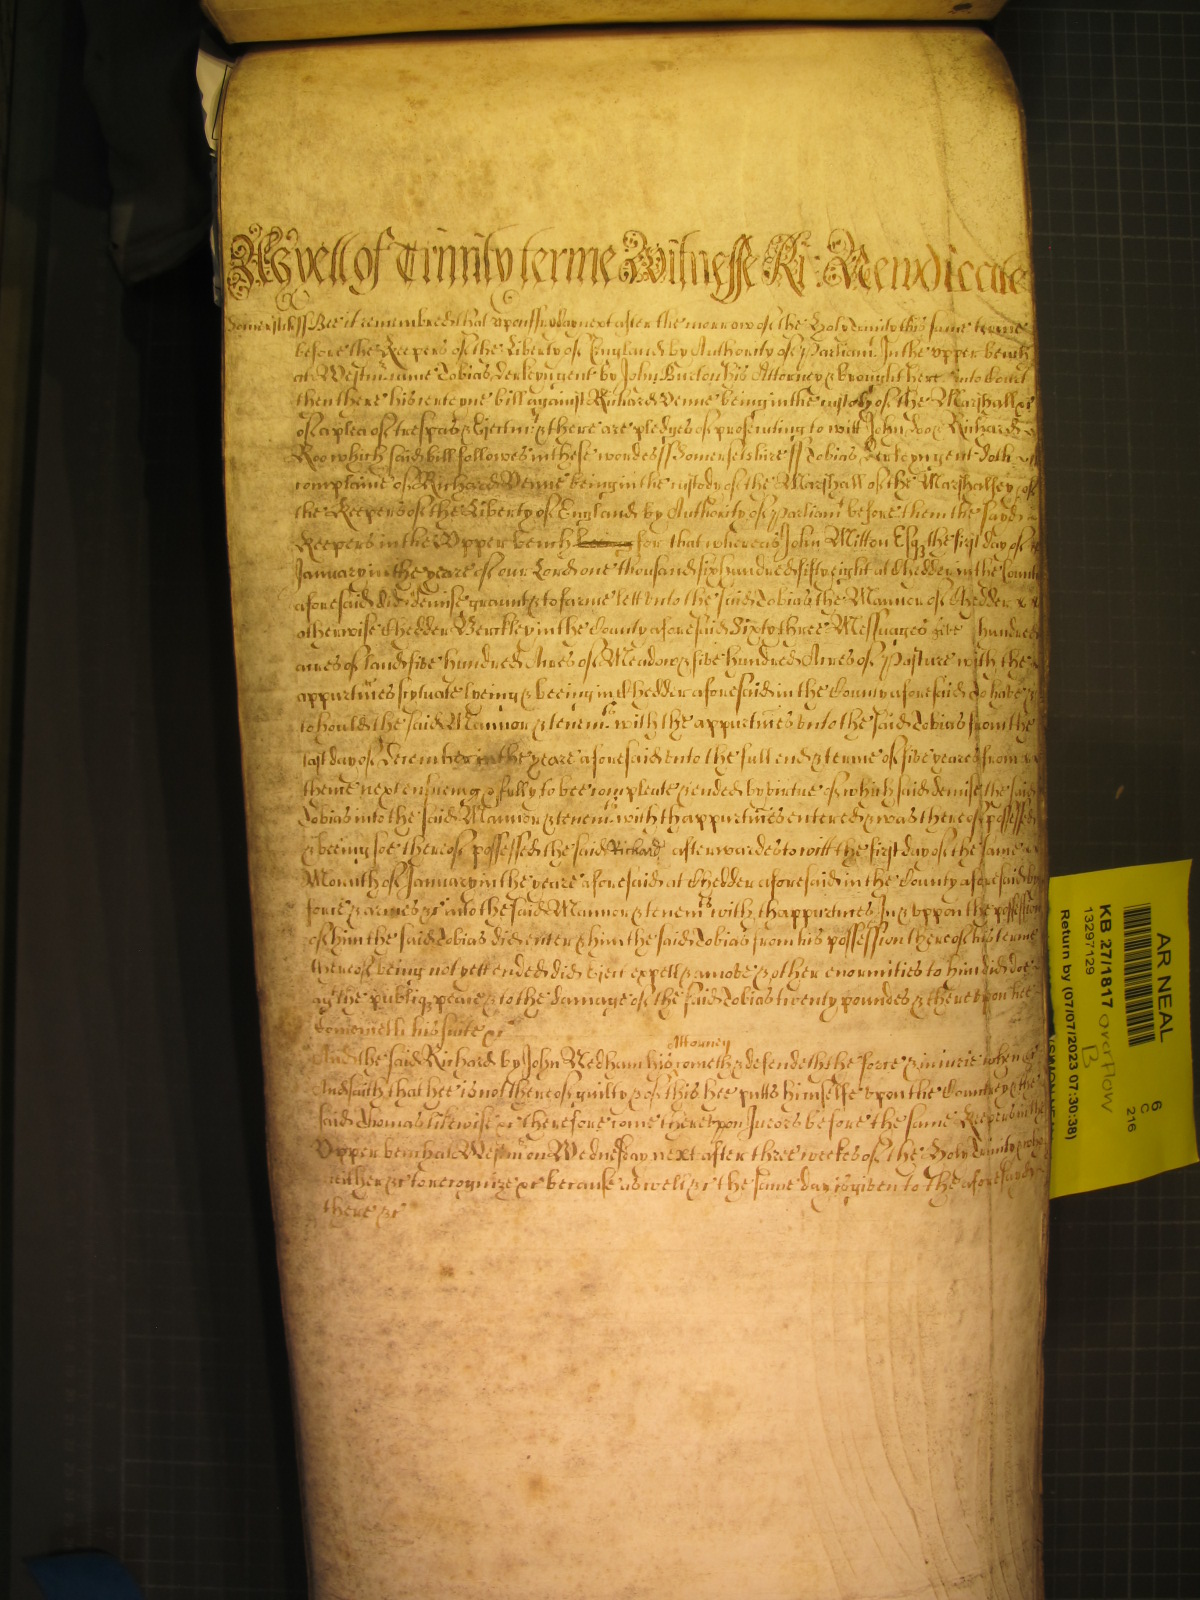 As yett of Trinity terme Witnesse Ri: Newdiccate
Somersett ss Bee it remembred that upon fryday next after the morrow of the Holy Trinity this same terme
before the Keepers of the Liberty of England by Authority of Parliamt. In the upper bench
at Westm. came Tobias gent by John Burton his Attorney & brought here into Court
then there his certeyne bill against Richard Venne being in the custody of the Marshall &c
of a plea of trespas & Ejectmt & there are pledges of prosecuting to witt John Doo & Richard
Roo which said bill followes in these wordes ss Somersetshire ss Tobias gent doth
complaine of Richard Venne being in the custody of the Marshall of the Marshalsey of
the Keepers of the Liberty of England by Authority of Parliamt before them the sayd
Keepers in the Upper bench for that whereas John Mitton Esqr the first day of
January in the yeare of our Lord one thousand six hundred fifty eight at Chedder in the County
aforesaid did demise graunt & to farme lett unto the said Tobias the Mannor of Chedder
otherwise Chedder Berckley in the County aforesaid Sixty three Messuages five hundred
acres of land five hundred Acres of Meadow & five hundred Acres of Pasture with the
appurtnes scytuate lyeing & beeing in Chedder aforesaid in the County aforesaid To have &
to hould the said Mannor & tenemts with the appurtnes unto the said Tobias from the
last day of December in the yeare aforesaid unto the full end & terme of five yeares from
thence next ensueing & fully to bee compleate & ended by virtue of which said demise the said
Tobias into the said Mannor & tenemts with thappurtnes entered & was thereof possessed
& beeing soe thereof possessed the said Richard afterwardes to witt the first day of the same
Mounth of January in the yeare aforesaid at Chedder aforesaid in the County aforesaid by
force & armes &c into the said Mannor & tenemts with thappurtnes In & uppon the possession
of him the said Tobias did enter & him the said Tobias from his possession thereof his terme
thereof being not yett ended did eject expell & amove & other enormities to him did doe
agt the publiq peace & to the damage of the said Tobias twenty poundes & thereupon hee
bringeth his suite &c
And the said Richard by John Nedham his Attorney cometh & defendeth the force & injurie when &c
And saith that hee is not thereof guilty & of this hee putts himselfe upon the Countrey & the
said Thomas likewise &c therefore come thereupon Jurors before the same Keepers in the
Upper bench at Westm on Wednesday next after three weekes of the Holy Trinity & who
neither &c to recognize &c because aswell &c the same day is given to the aforesayd
there &c
AR NEAL
KB 27/1817 overflow
B
13297129
Return by (07/07/2023 07:30:38)
6
C
216